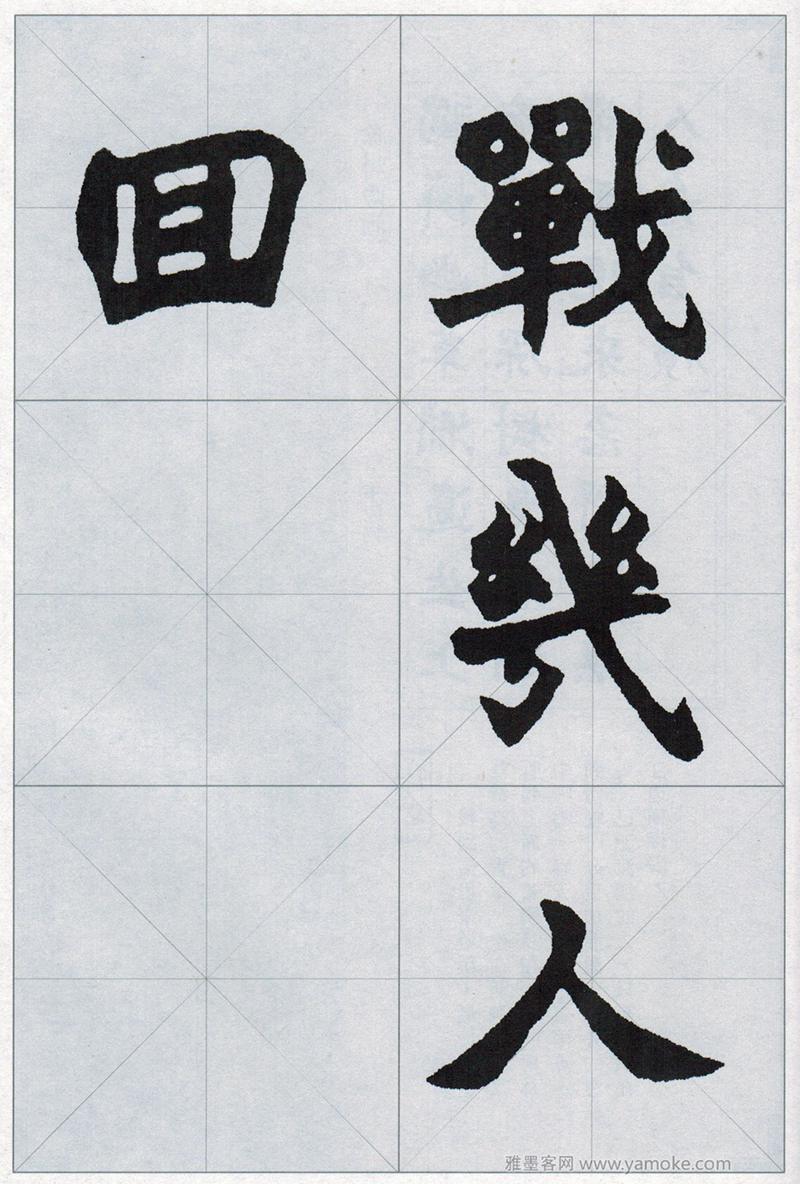 戰幾人
回
雅墨客网 www.yamoke.com